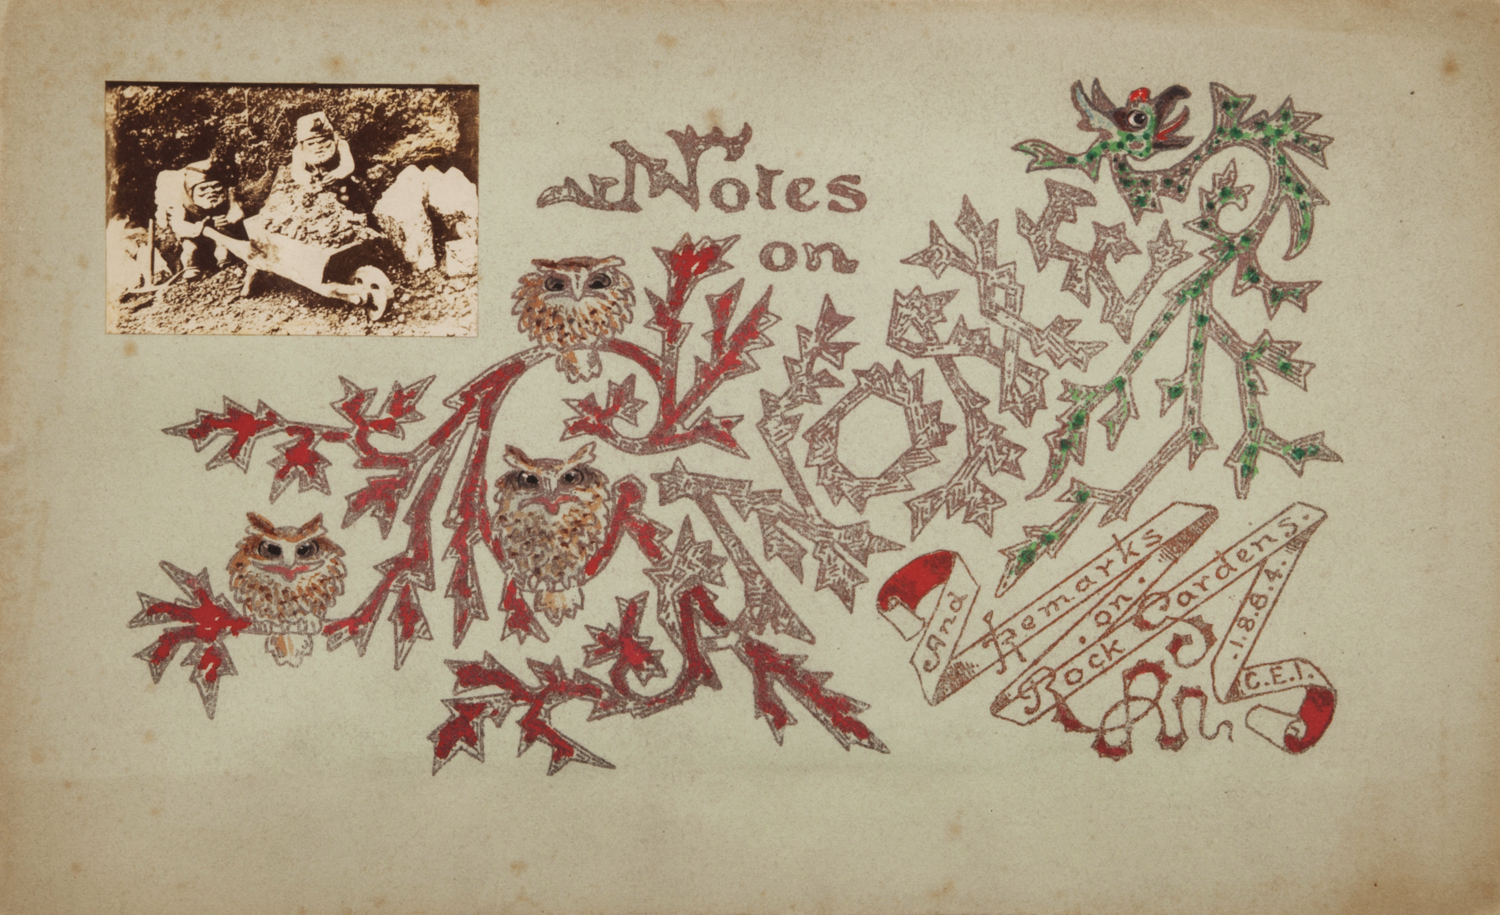 Notes
on
GNOMES
And
Remarks
.on.
Rock Gardens.
.1.8.8.4.
C.E.I.